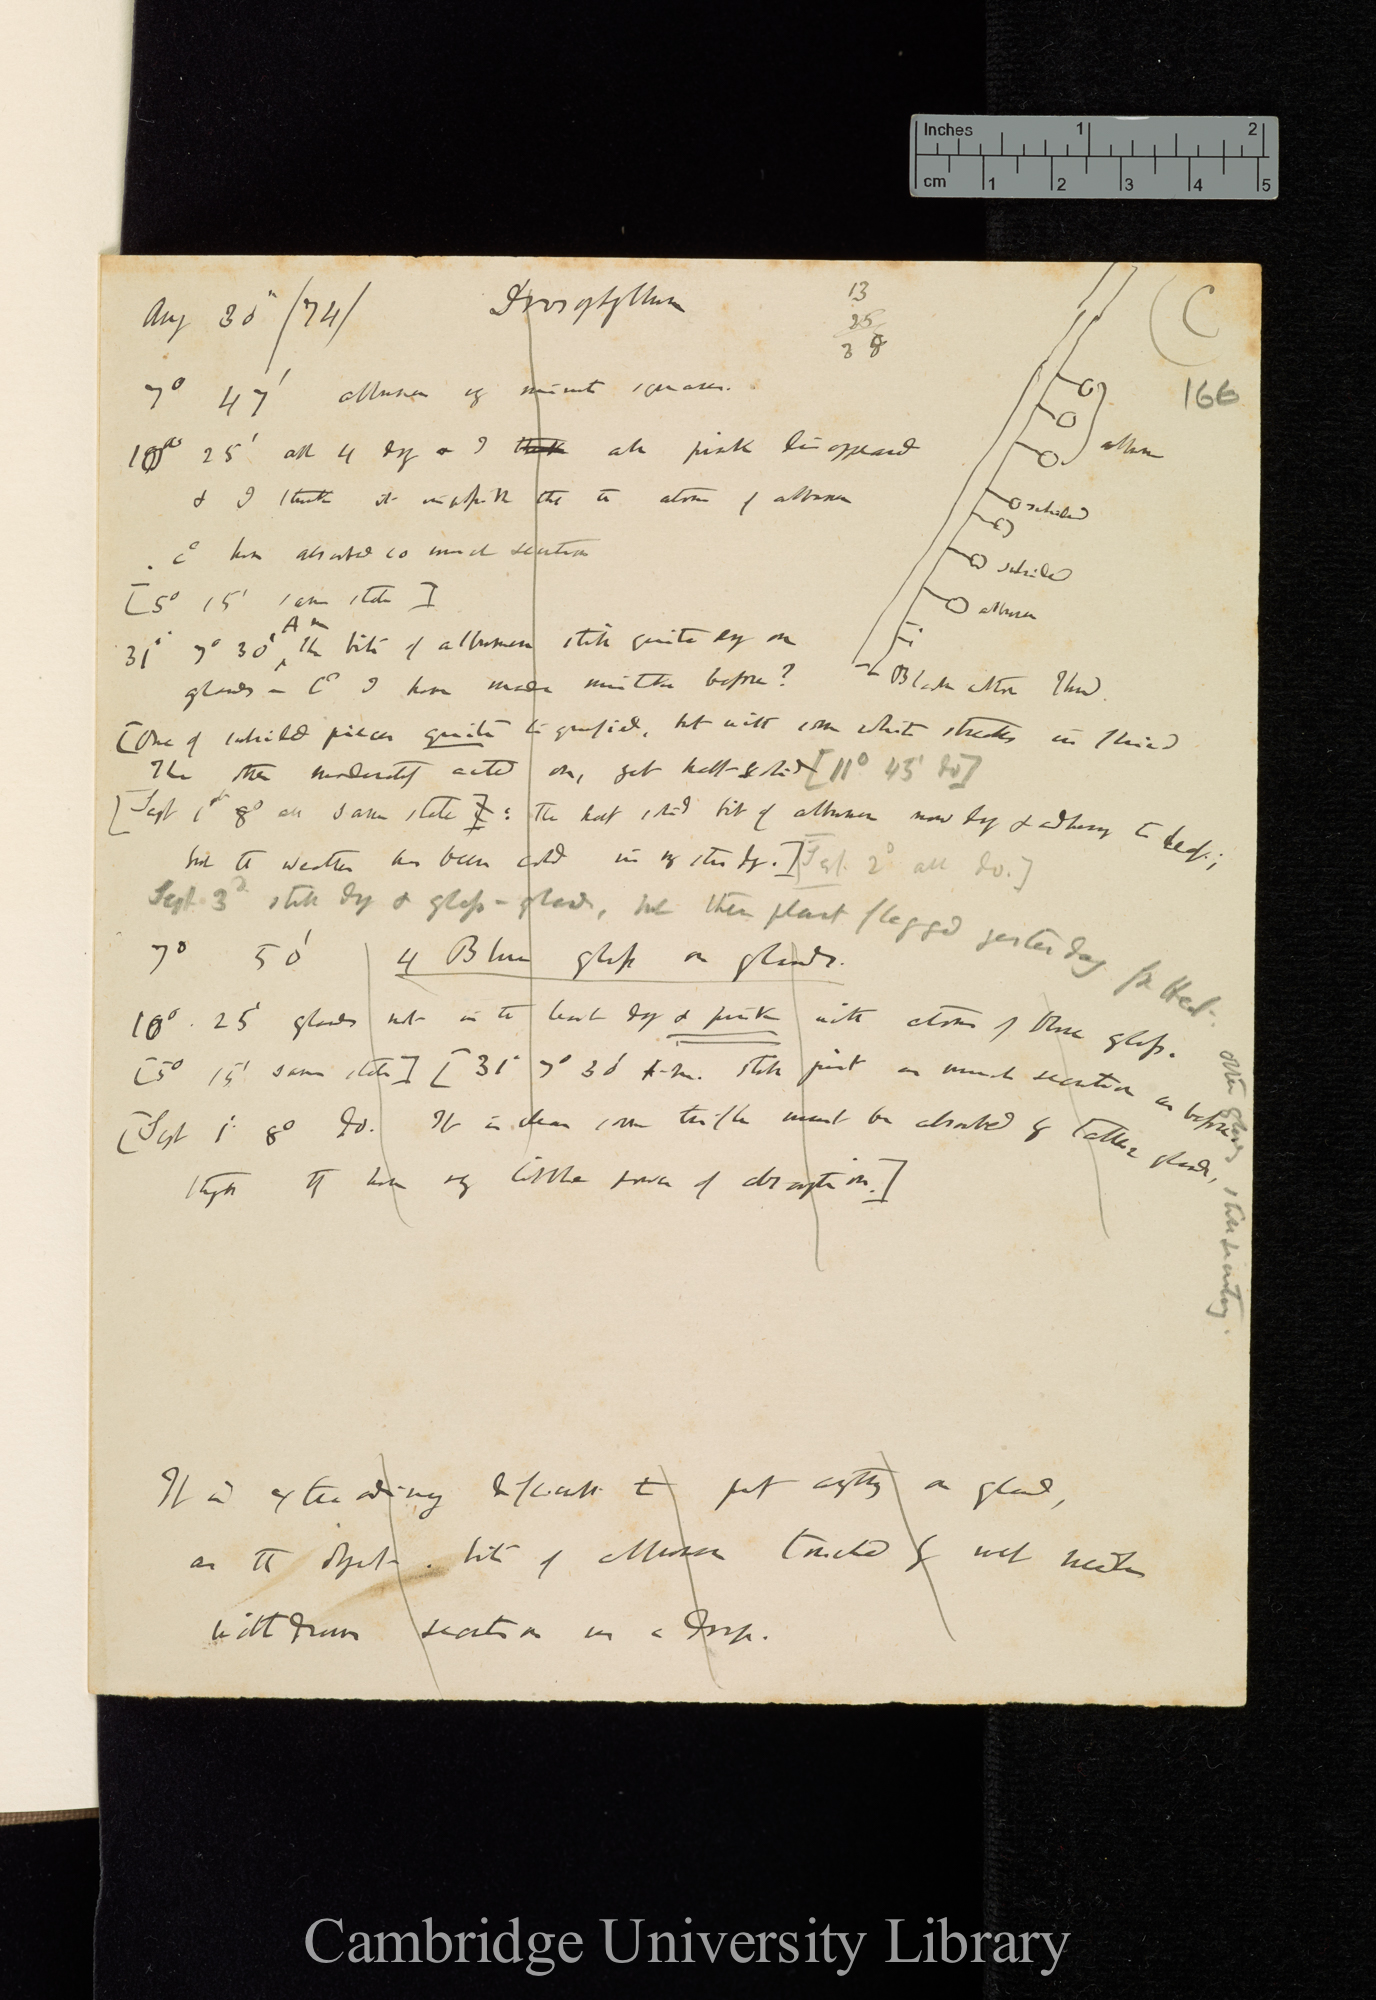 Inches 1 2
cm 1 2 3 4 5
Aug 30th /74/ Drosophyllum
13
25
38
C
166
7° 47' albumen of minute squares.
10° 25' all 4 dry & I think all pink disappeared
& I think it impossible that the atoms of albumen
cd have absorbed so much secretion
[5° 15' same state]
31st 7° 30' A m the bits of albumen still quite dry on
glands — Cd I have made mistake before?
[One of published pieces quite liquefied, but with some white streaks in fluid
The other moderately acted on, yet half-solid [11° 45' do]
[Sept 1st 8° all same state]: the half solid bit of albumen now dry & adhering to leaf;
but the weather has been cold in my study.] [Sept. 2d all do.]
Sept. 3d still dry & glass-glands, but then plant flagged yesterday
albumen
albumen
Black cotton Thread.
7° 50' 4 Blue glass on glands.
10° 25' glands not in the least dry & pink with atoms of Blue glass.
[5° 15' same state] [31st 7° 30' A.m. still pink as much secretion as before
[Sept 1st 8° do. It is clear some trifle must be absorbed by taller glands,
though they have very little power of absorption.]
other glands still secreting.
It is extraordinary difficult to put anything on gland,
as the object. bits of albumen touched by wet needle
withdraws secretion in a drop.
Cambridge University Library